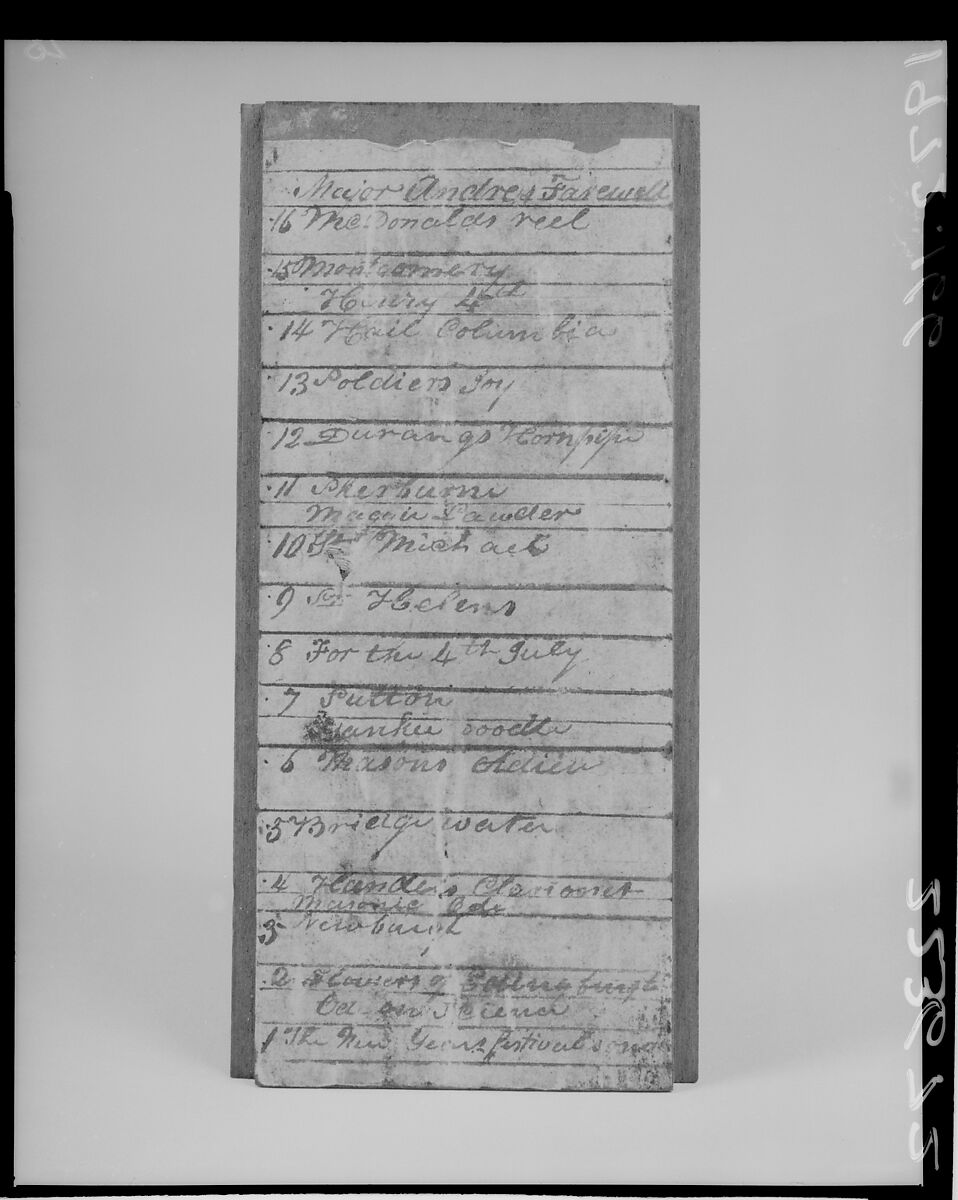 Major Andres Farewell
16 McDonalds reel
15 Montgomery
Henry 4th
14 Hail Columbia
13 Soldiers Joy
12 Durangs Hornpipe
11 Sherburne
Maggie Lawder
10 St Michael
9 St Helens
8 For the 4th July
7 Sutton
Yankee doodle
6 Masons Adieu
5 Bridgewater
4 Handels Clarionet
Masonic Ode
3 Newburgh
2 Flowers of
Od on Science
1 The New Years festival song